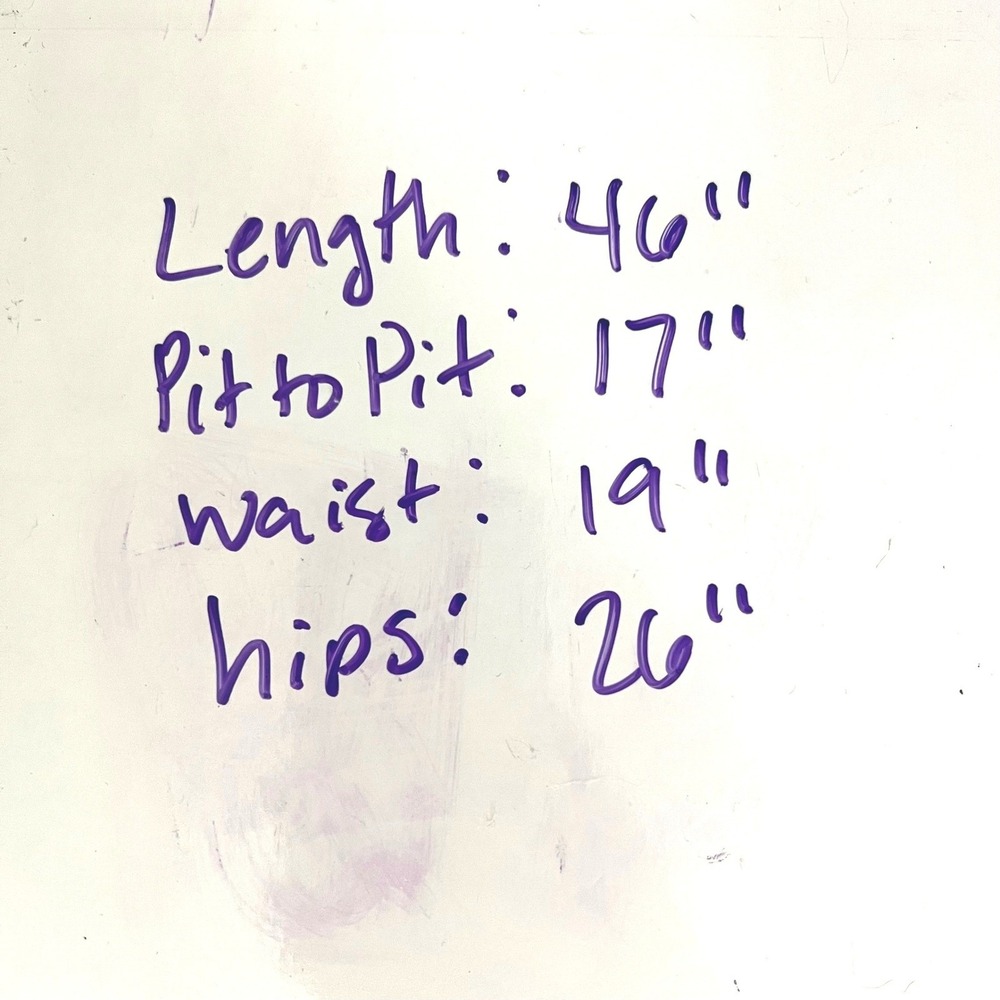 Length: 46"
Pit to Pit: 17"
waist: 19"
hips: 26"